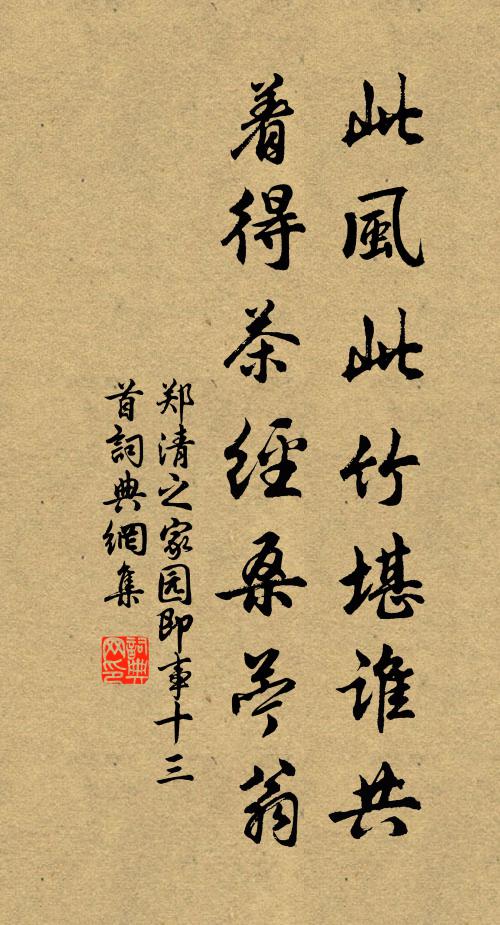 此風此竹堪誰共
着得茶經桑苧翁
郑清之家园即事十三
首詞典網集
詞典
网印